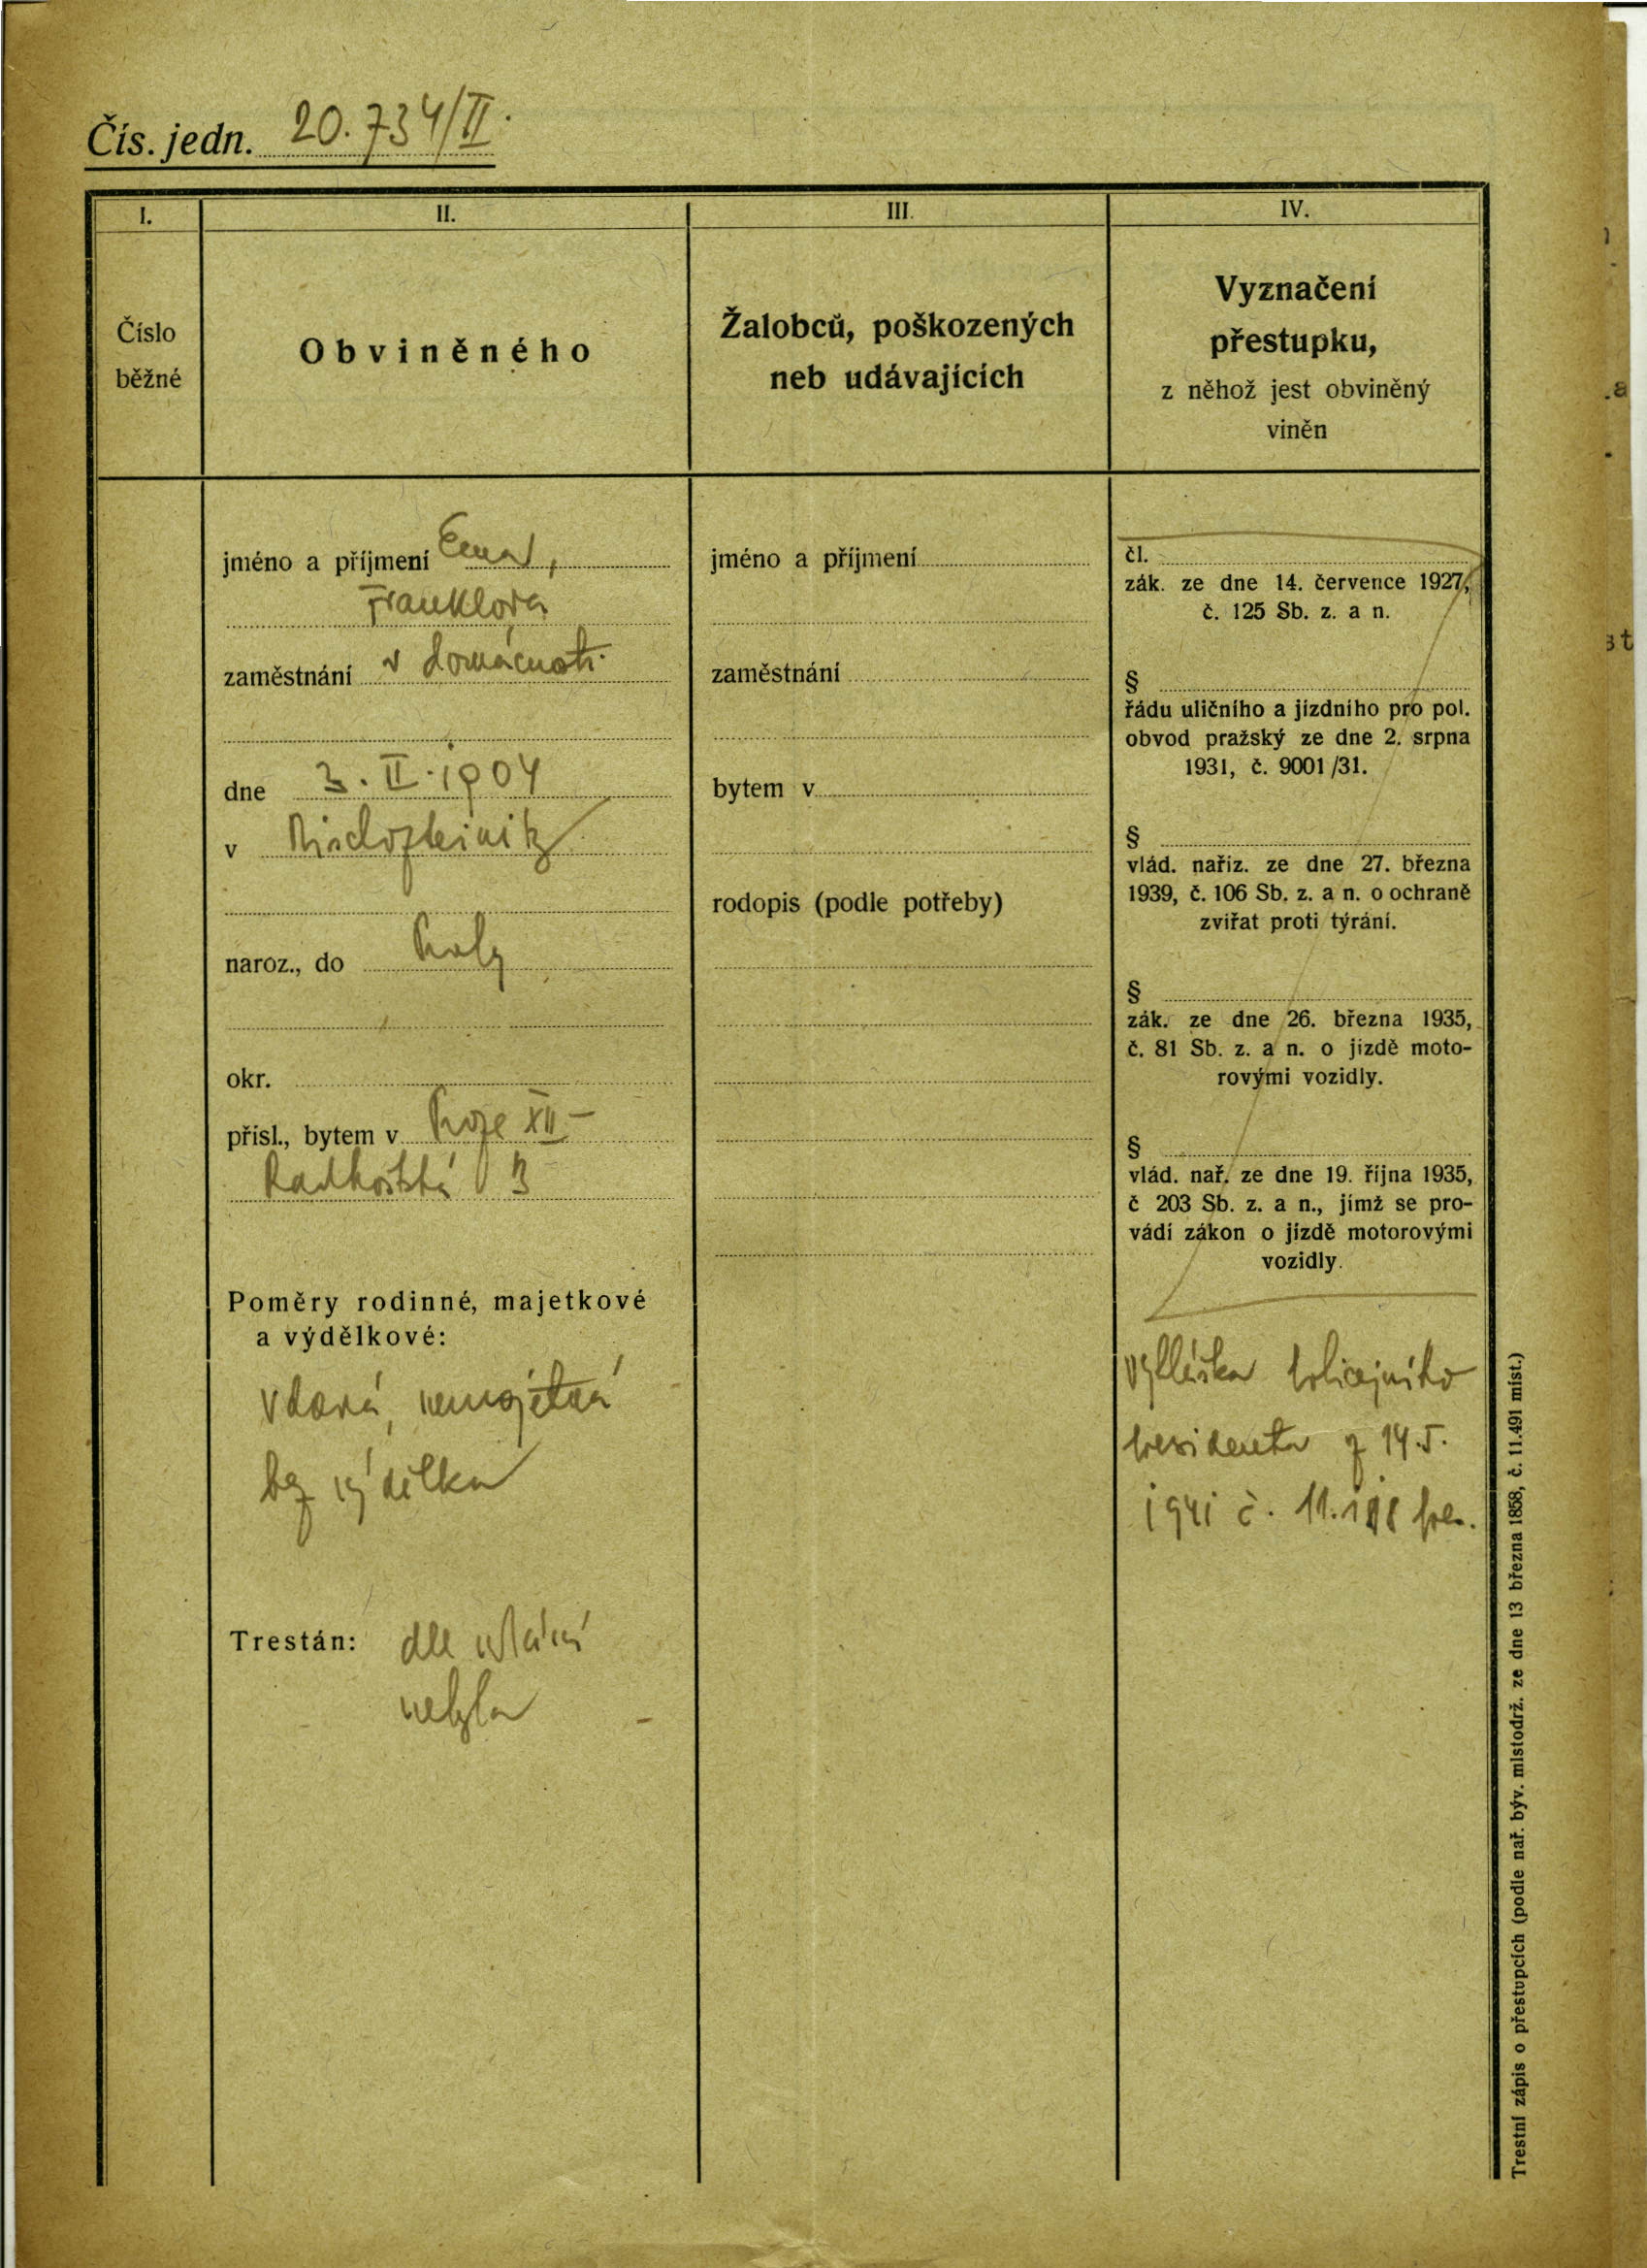 Čís. jedn. 20.734/II.
I.
Číslo
běžné
II.
Obviněného
III.
Žalobců, poškozených
neb udávajících
IV.
Vyznačení
přestupku,
z něhož jest obviněný
viněn
jméno a příjmení Ema
Franklová
zaměstnání v domácnosti
dne 3. II. 1904
v
naroz., do Prahy
okr.
přísl., bytem v Praze XII –
Radhošťská 3
Poměry rodinné, majetkové
a výdělkové:
vdaná, nemajetná
bez výdělku
Trestán: dle udání
nebyla
jméno a příjmení
zaměstnání
bytem v
rodopis (podle potřeby)
čl.
zák. ze dne 14. července 1927,
č. 125 Sb. z. a n.
§
řádu uličního a jízdního pro pol.
obvod pražský ze dne 2. srpna
1931, č. 9001/31.
§
vlád. nařiz. ze dne 27. března
1939, č. 106 Sb. z. a n. o ochraně
zvířat proti týrání.
§
zák. ze dne 26. března 1935,
č. 81 Sb. z. a n. o jízdě moto-
rovými vozidly.
§
vlád. nař. ze dne 19. října 1935,
č 203 Sb. z. a n., jímž se pro-
vádí zákon o jízdě motorovými
vozidly.
vyhláška policejního
presidenta z 14.5.
1941 č. pres.
Trestní zápis o přestupcích (podle nař. býv. místodrž. ze dne 13 března 1858, č. 11.491 míst.)